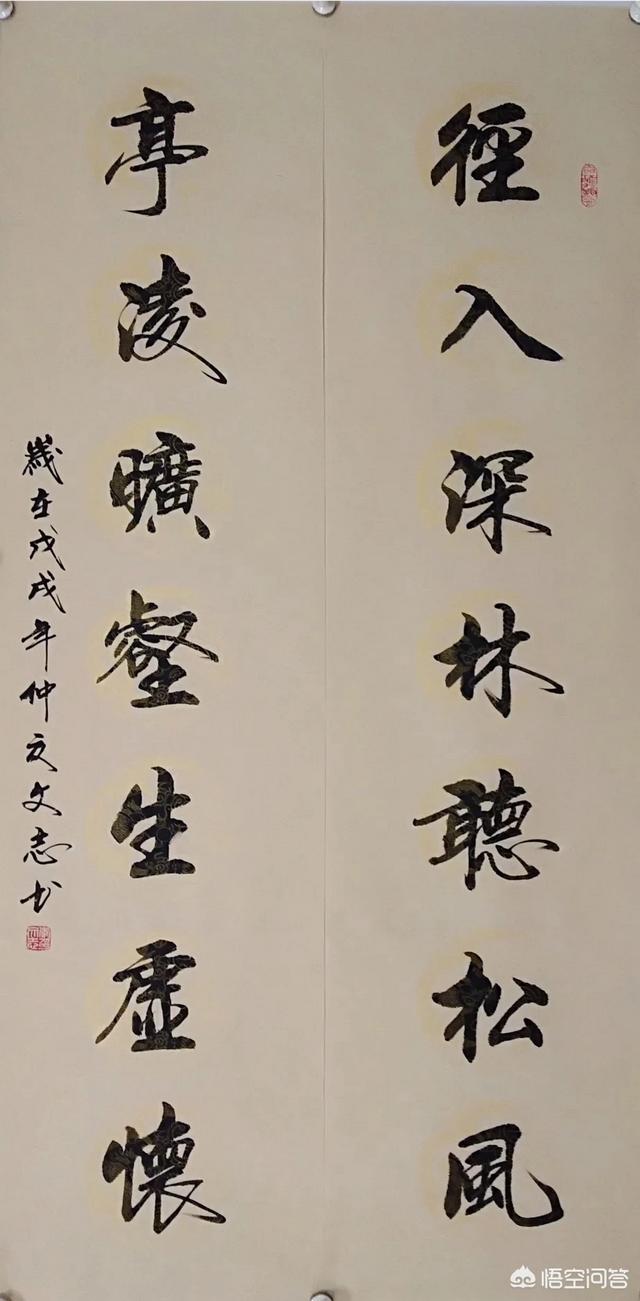 徑入深林聽松風
亭凌曠壑生虛懷
歲在戊戌年仲夏文志书
悟空问答